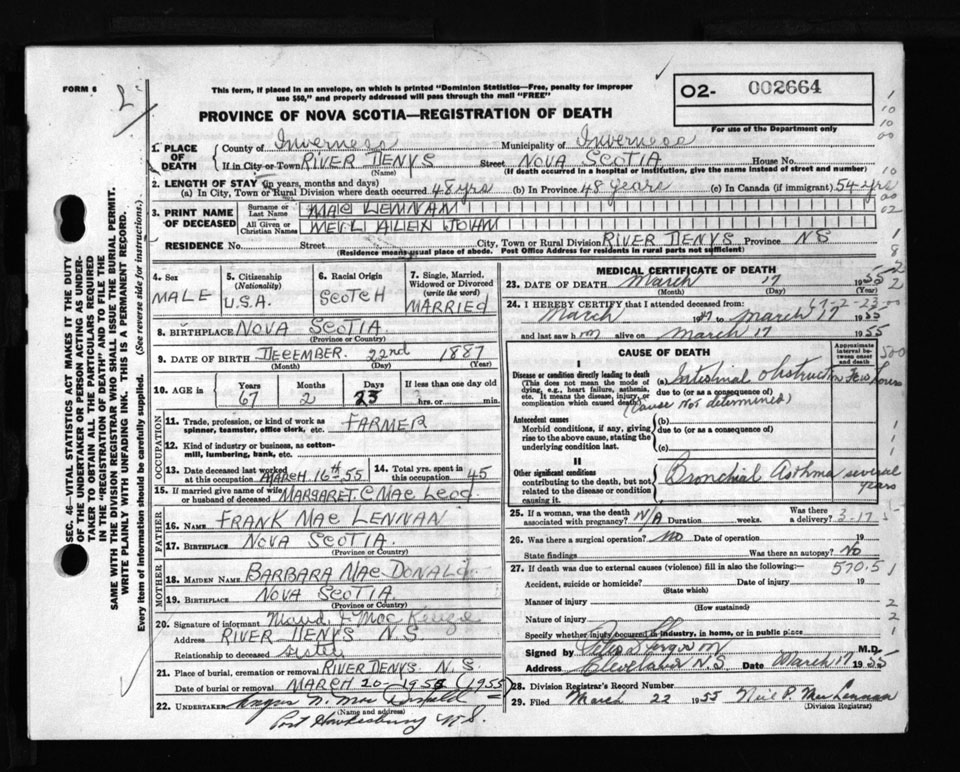 FORM 6
This form, if placed in an envelope, on which is printed "Dominion Statistics—Free, penalty for improper
use $50," and properly addressed will pass through the mail "FREE"
O2- 002664
For use of the Department only
PROVINCE OF NOVA SCOTIA—REGISTRATION OF DEATH
1. PLACE OF DEATH
County of Inverness Municipality of Inverness
If in City or Town RIVER DENYS Street NOVA SCOTIA House No.
(Name) (If death occurred in a hospital or institution, give the name instead of street and number)
2. LENGTH OF STAY (in years, months and days)
(a) In City, Town or Rural Division where death occurred 48 yrs (b) In Province 48 years (c) In Canada (if immigrant) 54 yrs
3. PRINT NAME OF DECEASED
Surname or Last Name MAC LENNAN
All Given or Christian Names NEIL ALLEN JOHN
RESIDENCE No. Street City, Town or Rural Division RIVER DENYS Province NS
(Residence means usual place of abode. Post Office Address for residents in rural parts not sufficient)
4. Sex MALE
5. Citizenship (Nationality) U.S.A.
6. Racial Origin SCOTCH
7. Single, Married, Widowed or Divorced (write the word) MARRIED
8. BIRTHPLACE NOVA SCOTIA
(Province or Country)
9. DATE OF BIRTH DECEMBER 22nd 1887
(Month) (Day) (Year)
10. AGE in Years 67 Months 2 Days 23 If less than one day hrs. or min.
OCCUPATION
11. Trade, profession, or kind of work as spinner, teamster, office clerk, etc. FARMER
12. Kind of industry or business, as cotton-mill, lumbering, bank, etc.
13. Date deceased last worked at this occupation MARCH 16th 55
14. Total yrs. spent in this occupation 45
15. If married give name of wife or husband of deceased MARGARET C MAC LEOD
FATHER
16. NAME FRANK MAC LENNAN
17. BIRTHPLACE NOVA SCOTIA
(Province or Country)
MOTHER
18. MAIDEN NAME BARBARA MAC DONALD
19. BIRTHPLACE NOVA SCOTIA
(Province or Country)
20. Signature of informant Maud J. Mac
Address RIVER DENYS N.S.
Relationship to deceased sister
21. Place of burial, cremation or removal RIVER DENYS. N.S.
Date of burial or removal MARCH 20-1955 (1955)
22. UNDERTAKER Angus N. Mac Donald
(Name and address)
Port Hawkesbury N.S.
MEDICAL CERTIFICATE OF DEATH
23. DATE OF DEATH March 17 1955
(Month) (Day) (Year)
67-2-23
24. I HEREBY CERTIFY that I attended deceased from:
March 19 to March 17 1955
and last saw h im alive on March 17 1955
CAUSE OF DEATH
Approximate interval between onset and death
I
Disease or condition directly leading to death
(This does not mean the mode of dying, e.g., heart failure, asthenia, etc. It means the disease, injury, or complication which caused death.)
(a) Intestinal obstruction few hours
due to (or as a consequence of)
(Cause not determined)
Antecedent causes
Morbid conditions, if any, giving rise to the above cause, stating the underlying condition last.
(b)
due to (or as a consequence of)
(c)
II
Other significant conditions contributing to the death, but not related to the disease or condition causing it.
Bronchial Asthma several years
25. If a woman, was the death associated with pregnancy? N/A Duration weeks. Was there a delivery? 3-17
26. Was there a surgical operation? No Date of operation 19
State findings Was there an autopsy? No
27. If death was due to external causes (violence) fill in also the following:— 570.5
Accident, suicide or homicide? Date of injury 19
(State which)
Manner of injury
(How sustained)
Nature of injury
Specify whether injury occurred in industry, in home, or in public place
Signed by M.D.
Address Cleveland N.S. Date March 17 1955
28. Division Registrar's Record Number
29. Filed March 22 1955 Neil P. Mac Lennan
(Division Registrar)
SEC. 46—VITAL STATISTICS ACT MAKES IT THE DUTY
OF THE UNDERTAKER OR PERSON ACTING AS UNDER-
TAKER TO OBTAIN ALL THE PARTICULARS REQUIRED
IN THE "REGISTRATION OF DEATH" AND TO FILE THE
SAME WITH THE DIVISION REGISTRAR WHO SHALL ISSUE THE BURIAL PERMIT.
WRITE PLAINLY WITH UNFADING INK. THIS IS A PERMANENT RECORD.
Every item of information should be carefully supplied. (See reverse side for instructions.)